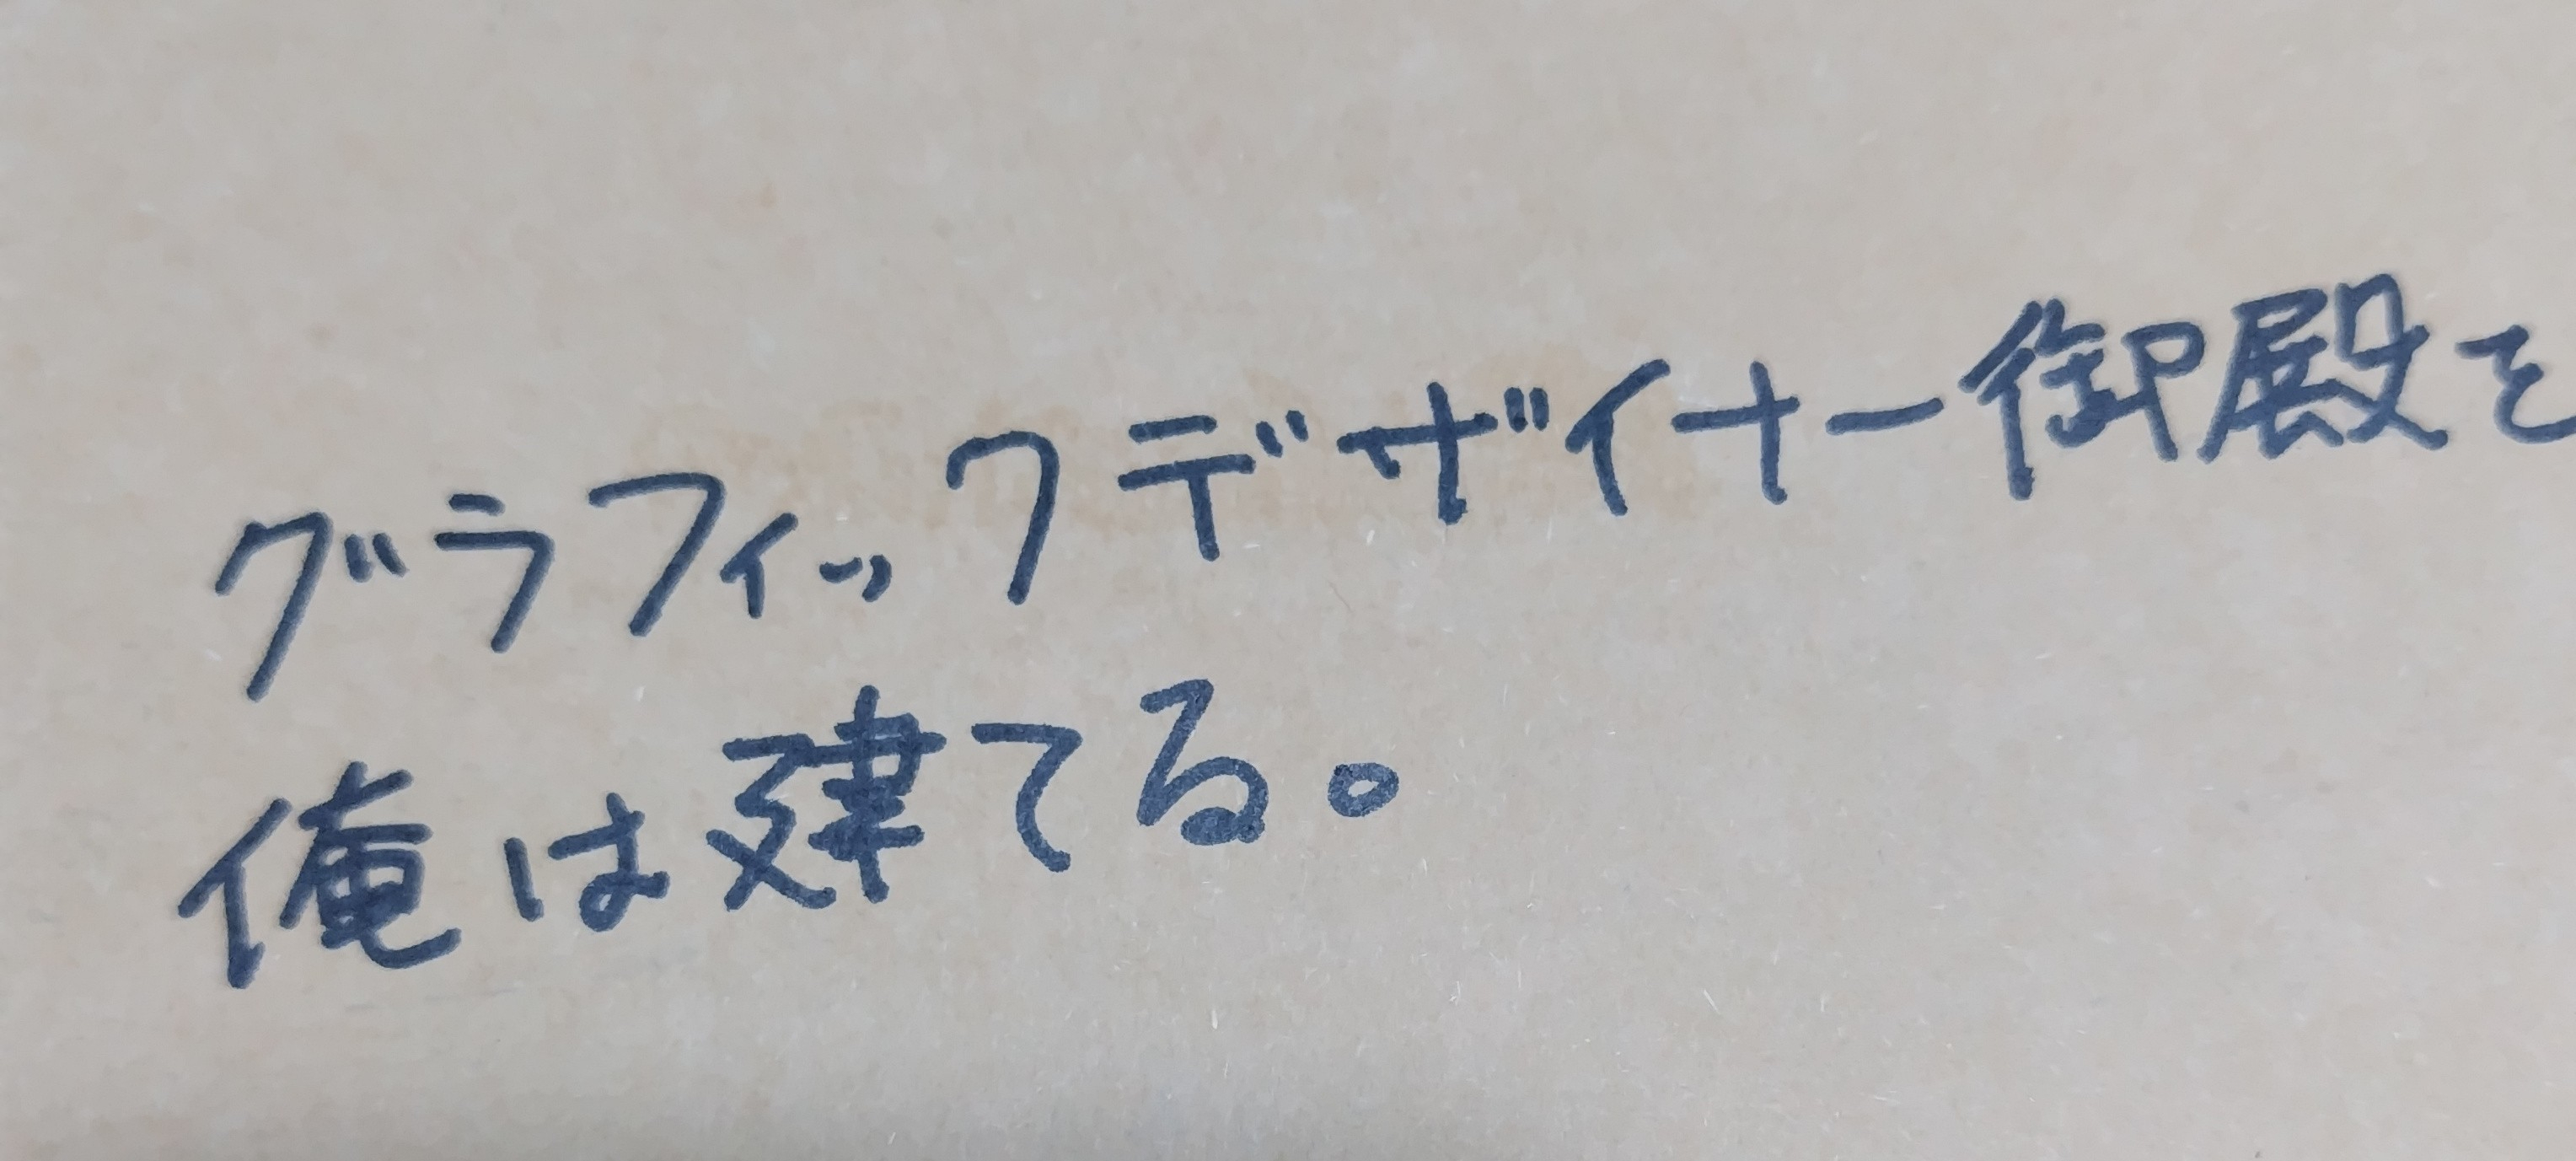 グラフィックデザイナー御殿を
俺は建てる。